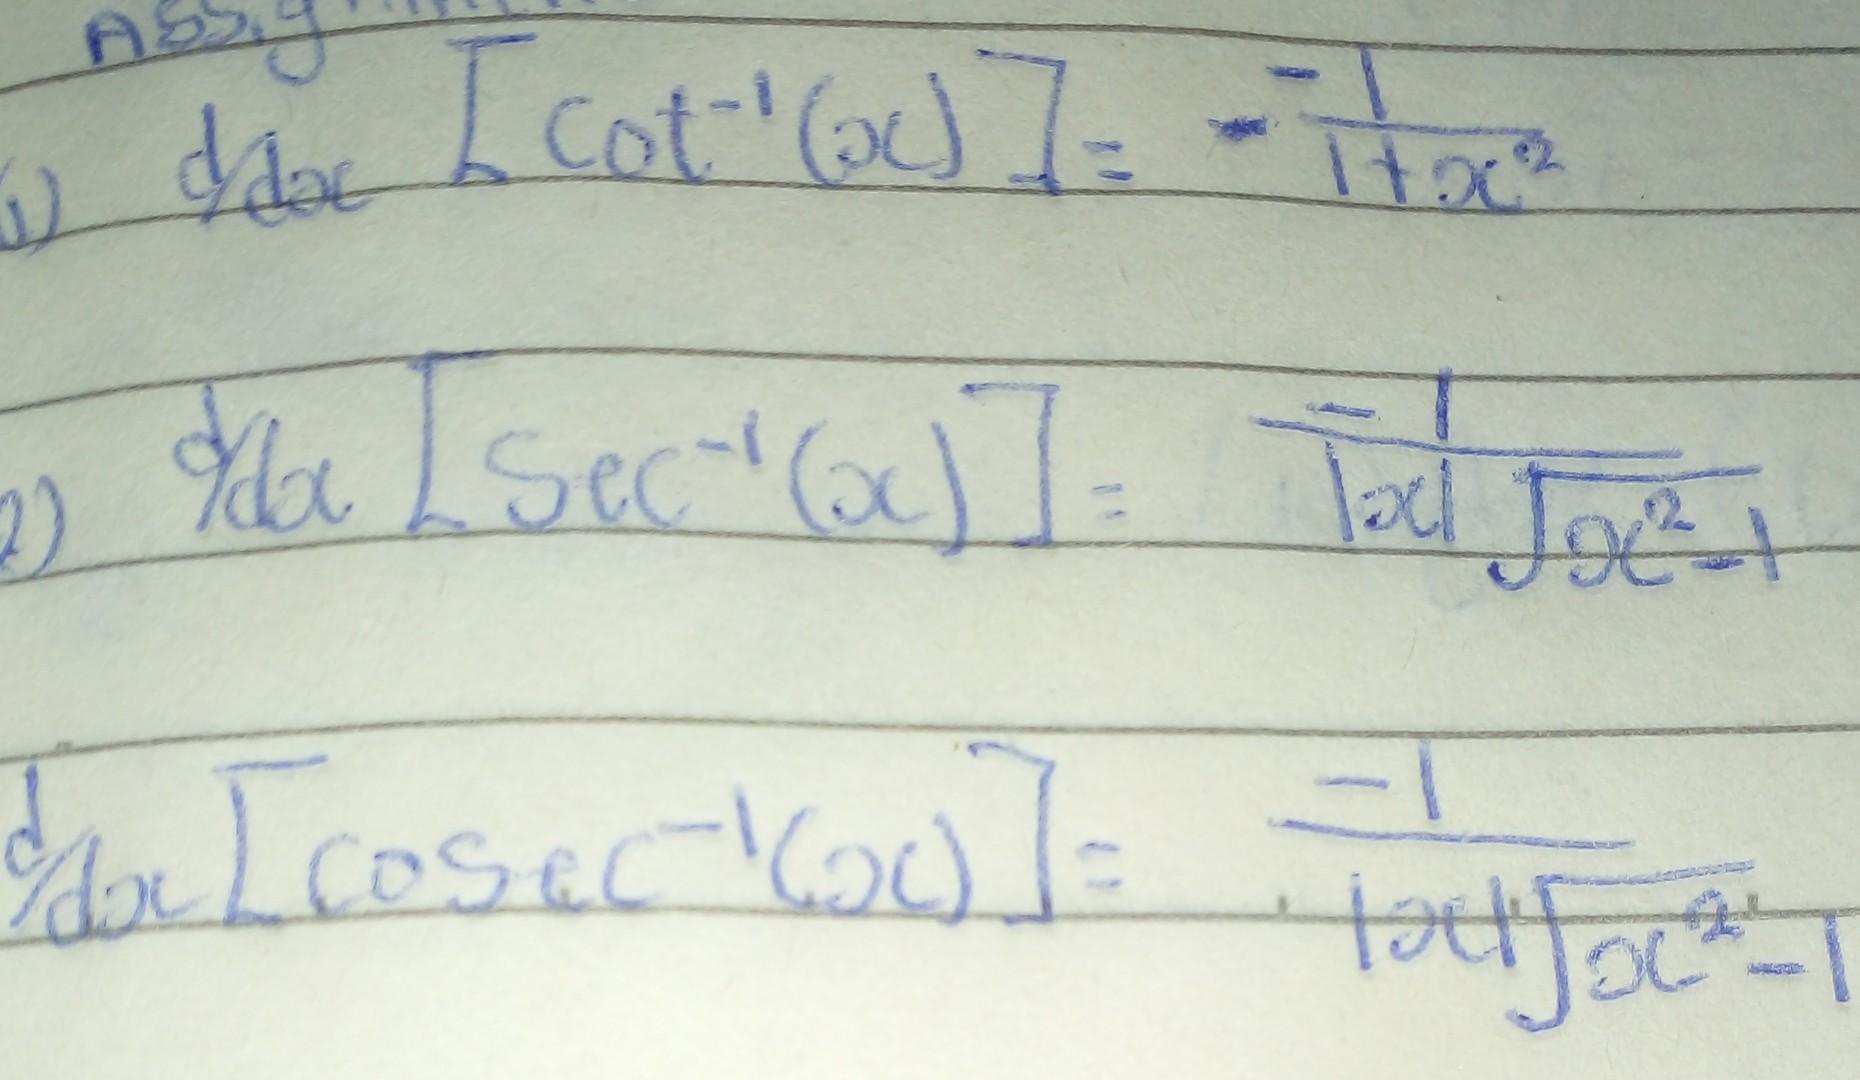 1) d/dx [cot⁻¹(x)] = - -1/1+x²
2) d/dx [Sec⁻¹(x)] = -1/|x|√x²-1
d/dx [coSec⁻¹(x)] = -1/|x|√x²-1